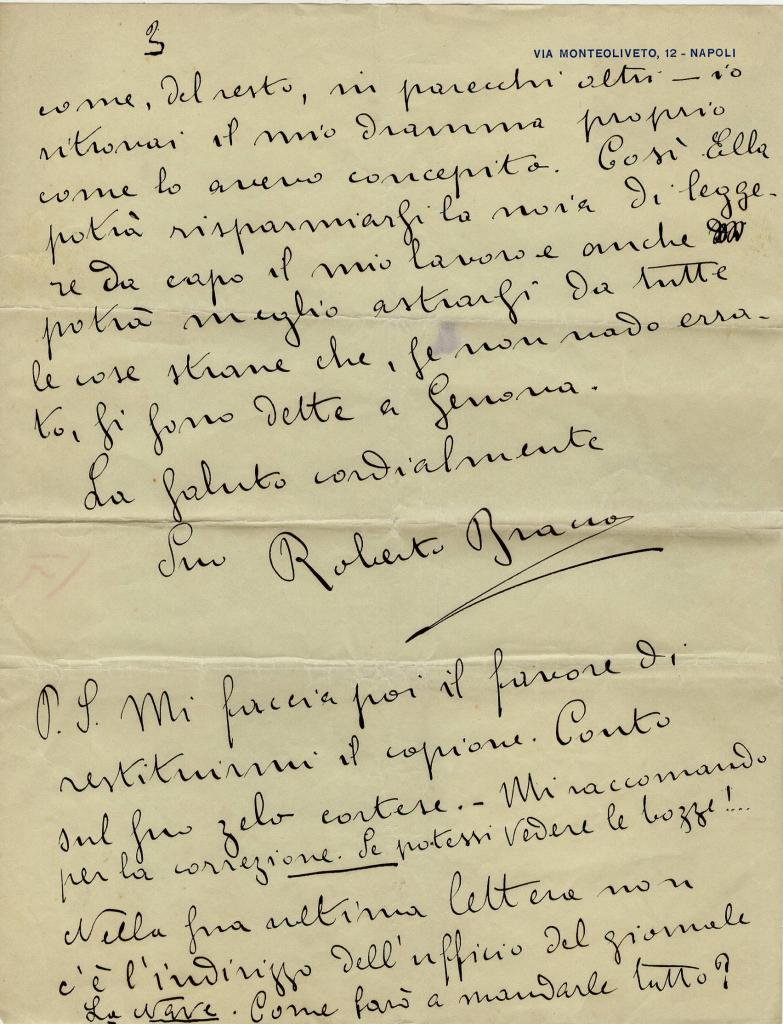 3
VIA MONTEOLIVETO, 12 - NAPOLI
come, del resto, in parecchi altri — io
ritrovai il mio dramma proprio
come lo avevo concepito. Così Ella
potrà risparmiarsi la noia di legge-
re da capo il mio lavoro e anche
potrà meglio astrarsi da tutte
le cose strane che, se non vado erra-
to, si sono dette a Genova.
La saluto cordialmente
Suo Roberto Bracco
P. S. Mi faccia poi il favore di
restituirmi il copione. Conto
sul suo zelo cortese. - Mi raccomando
per la correzione. Se potessi vedere le bozze!...
Nella sua ultima lettera non
c'è l'indirizzo dell'ufficio del giornale
La Nave. Come farò a mandarle tutto?